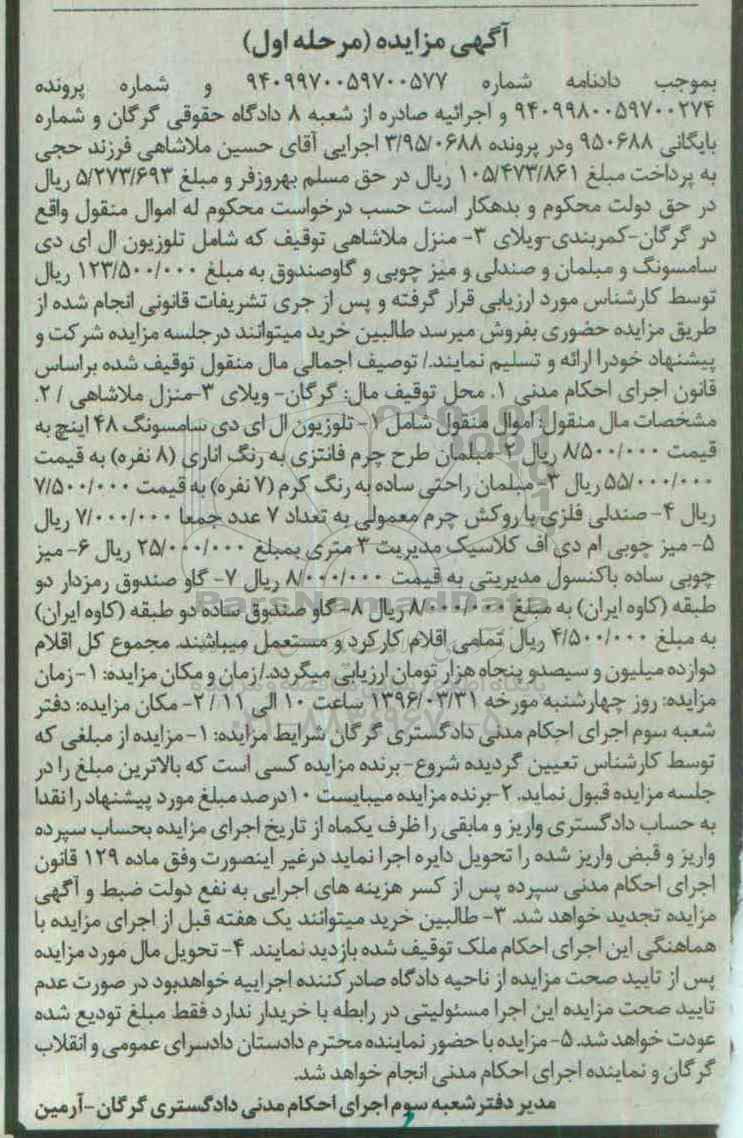 آگهی مزایده (مرحله اول)
بموجب دادنامه شماره ۹۴۰۹۹۷۰۰۵۹۷۰۰۵۷۷ و شماره پرونده
۹۴۰۹۹۸۰۰۵۹۷۰۰۲۷۴ و اجرائیه صادره از شعبه ۸ دادگاه حقوقی گرگان و شماره
بایگانی ۹۵۰۶۸۸ ودر پرونده ۳/۹۵/۰۶۸۸ اجرایی آقای حسین ملاشاهی فرزند حجی
به پرداخت مبلغ ۱۰۵/۴۷۳/۸۶۱ ریال در حق مسلم بهروزفر و مبلغ ۵/۲۷۳/۶۹۳ ریال
در حق دولت محکوم و بدهکار است حسب درخواست محکوم له اموال منقول واقع
در گرگان-کمربندی-ویلای ۳- منزل ملاشاهی توقیف که شامل تلوزیون ال ای دی
سامسونگ و مبلمان و صندلی و میز چوبی و گاوصندوق به مبلغ ۱۲۳/۵۰۰/۰۰۰ ریال
توسط کارشناس مورد ارزیابی قرار گرفته و پس از جری تشریفات قانونی انجام شده از
طریق مزایده حضوری بفروش میرسد طالبین خرید میتوانند درجلسه مزایده شرکت و
پیشنهاد خودرا ارائه و تسلیم نمایند./ توصیف اجمالی مال منقول توقیف شده براساس
قانون اجرای احکام مدنی ۱. محل توقیف مال: گرگان- ویلای ۳-منزل ملاشاهی / ۲.
مشخصات مال منقول: اموال منقول شامل ۱- تلوزیون ال ای دی سامسونگ ۴۸ اینچ به
قیمت ۸/۵۰۰/۰۰۰ ریال ۲-مبلمان طرح چرم فانتزی به رنگ اناری (۸ نفره) به قیمت
۵۵/۰۰۰/۰۰۰ ریال ۳- مبلمان راحتی ساده به رنگ کرم (۷ نفره) به قیمت ۷/۵۰۰/۰۰۰
ریال ۴- صندلی فلزی با روکش چرم معمولی به تعداد ۷ عدد جمعا ۷/۰۰۰/۰۰۰ ریال
۵- میز چوبی ام دی اف کلاسیک مدیریت ۳ متری بمبلغ ۲۵/۰۰۰/۰۰۰ ریال ۶- میز
چوبی ساده باکنسول مدیریتی به قیمت ۸/۰۰۰/۰۰۰ ریال ۷- گاو صندوق رمزدار دو
طبقه (کاوه ایران) به مبلغ ۸/۰۰۰/۰۰۰ ریال ۸- گاو صندوق ساده دو طبقه (کاوه ایران)
به مبلغ ۴/۵۰۰/۰۰۰ ریال تمامی اقلام کارکرد و مستعمل میباشند. مجموع کل اقلام
دوازده میلیون و سیصدو پنجاه هزار تومان ارزیابی میگردد./زمان و مکان مزایده: ۱-زمان
مزایده: روز چهارشنبه مورخه ۱۳۹۶/۰۳/۳۱ ساعت ۱۰ الی ۱۱ / ۲- مکان مزایده: دفتر
شعبه سوم اجرای احکام مدنی دادگستری گرگان شرایط مزایده: ۱-مزایده از مبلغی که
توسط کارشناس تعیین گردیده شروع-برنده مزایده کسی است که بالاترین مبلغ را در
جلسه مزایده قبول نماید. ۲-برنده مزایده میبایست ۱۰درصد مبلغ مورد پیشنهاد را نقدا
به حساب دادگستری واریز و مابقی را ظرف یکماه از تاریخ اجرای مزایده بحساب سپرده
واریز و قبض واریز شده را تحویل دایره اجرا نماید درغیر اینصورت وفق ماده ۱۲۹ قانون
اجرای احکام مدنی سپرده پس از کسر هزینه های اجرایی به نفع دولت ضبط و آگهی
مزایده تجدید خواهد شد. ۳- طالبین خرید میتوانند یک هفته قبل از اجرای مزایده با
هماهنگی این اجرای احکام ملک توقیف شده بازدید نمایند. ۴- تحویل مال مورد مزایده
پس از تایید صحت مزایده از ناحیه دادگاه صادرکننده اجراییه خواهدبود در صورت عدم
تایید صحت مزایده این اجرا مسئولیتی در رابطه با خریدار ندارد فقط مبلغ تودیع شده
عودت خواهد شد. ۵- مزایده با حضور نماینده محترم دادستان دادسرای عمومی و انقلاب
گرگان و نماینده اجرای احکام مدنی انجام خواهد شد.
مدیر دفتر شعبه سوم اجرای احکام مدنی دادگستری گرگان-آرمین
ParsNamadData